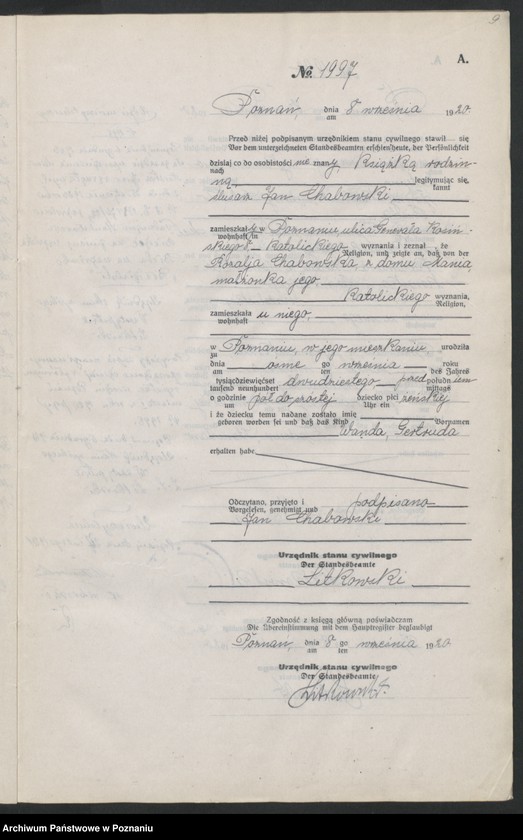 9
A.
№ 1997
Poznań, dnia 8 września 1920
am
Przed niżej podpisanym urzędnikiem stanu cywilnego stawił się
Vor dem unterzeichneten Standesbeamten erschien heute, der Persönlichkeit
dzisiaj co do osobistości nie znany, Książką rodzin-
nach
ną legitymując się,
kannt
ślusarz Jan Chabowski
zamieszkały w Poznaniu, ulica Generała Kosiń-
wohnhaft in
skiego 8 Katolickiego wyznania i zeznał, że
Religion, und zeigte an, daß von der
Rozalja Chabowska, z domu Mania
małżonka jego
Katolickiego wyznania,
Religion,
zamieszkała u niego,
wohnhaft
w Poznaniu, w jego mieszkaniu urodziła
zu
dnia ósme go września roku
am ten des Jahres
tysiącdziewięćset dwudziestego przed południem
tausend neunhundert mittags
o godzinie pół do szóstej dziecko płci żeńskiej
um Uhr ein
i że dziecku temu nadane zostało imię
geboren worden sei und daß das Kind Vornamen
Wanda, Gertruda
erhalten habe
Odczytano, przyjęto i podpisano
Vorgelesen, genehmigt und
Jan Chabowski
Urzędnik stanu cywilnego
Der Standesbeamte
Litkowski
Zgodność z księgą główną poświadczam
Die Übereinstimmung mit dem Hauptregister beglaubigt
Poznań, dnia 8 go września 1920
am ten
Urzędnik stanu cywilnego
Der Standesbeamte
Litkowski
Archiwum Państwowe w Poznaniu